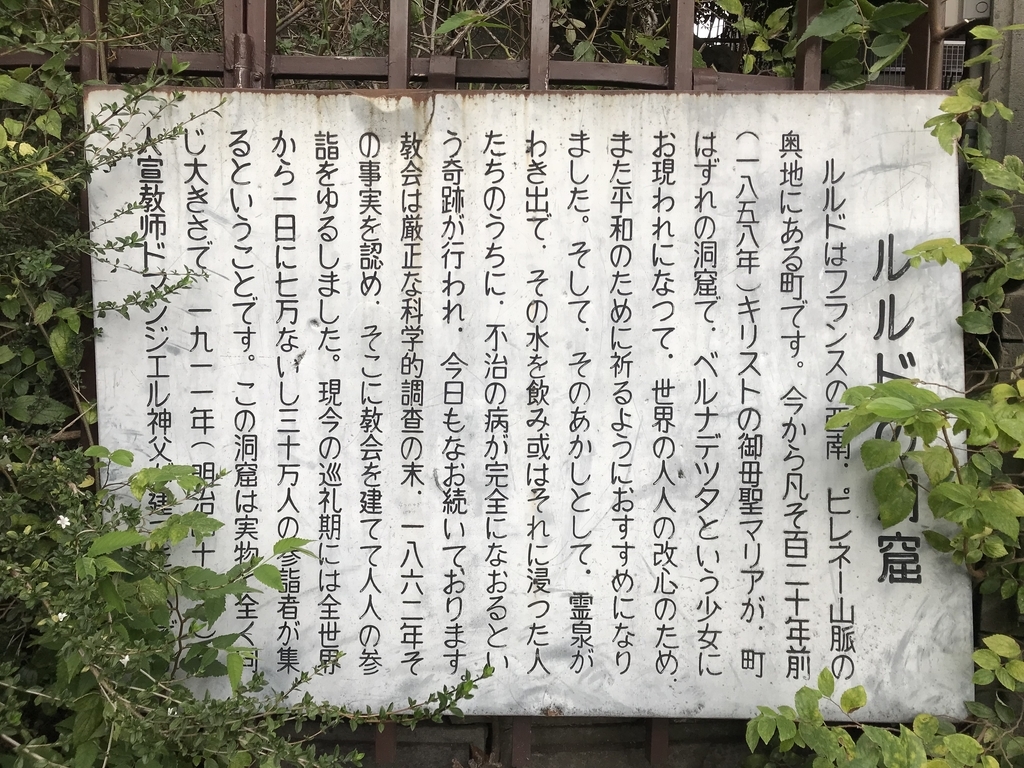 ルルドの窟
ルルドはフランスの西南．ピレネー山脈の
奥地にある町です。今から凡そ百二十年前
（一八五八年）キリストの御母聖マリアが．町
はずれの洞窟で．ベルナデツタという少女に
お現われになつて．世界の人人の改心のため．
また平和のために祈るようにおすすめになり
ました。そして．そのあかしとして．霊泉が
わき出て．その水を飲み或はそれに浸つた人
たちのうちに．不治の病が完全になおるとい
う奇跡が行われ．今日もなお続いております
教会は厳正な科学的調査の末．一八六二年そ
の事実を認め．そこに教会を建てて人人の参
詣をゆるしました。現今の巡礼期には全世界
から一日に七万ないし三十万人の参詣者が集
るということです。この洞窟は実物と全く同
じ大きさで．一九一一年（明治四十
宣教師ドラジエル神父 建